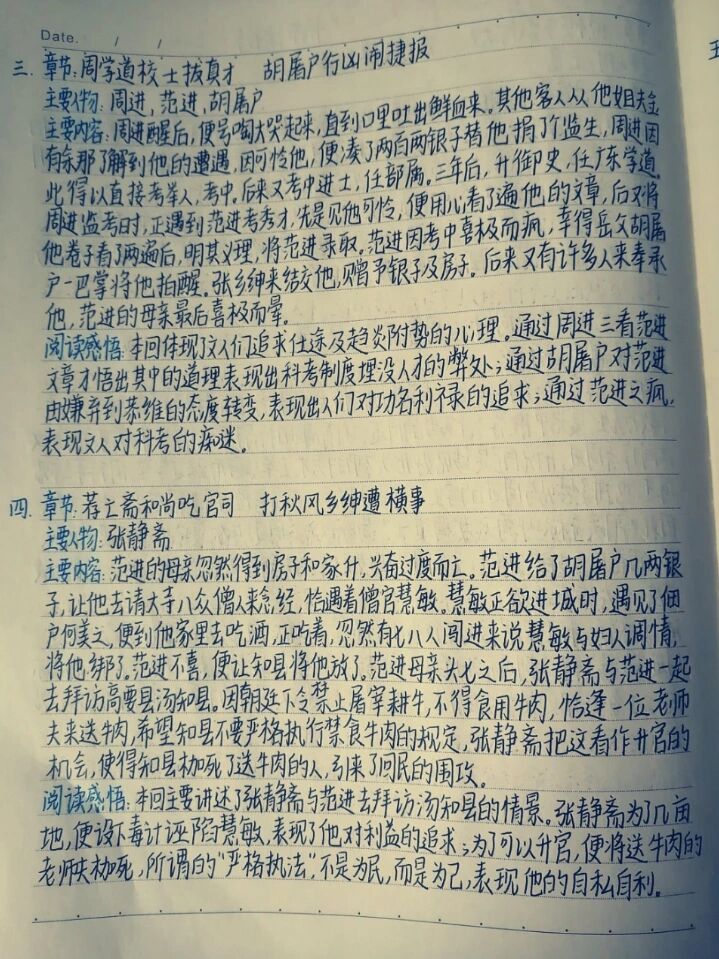 Date. / /
三. 章节:周学道校士拔真才 胡屠户行凶闹捷报
主要人物:周进,范进,胡屠户
主要内容:周进醒后,便号啕大哭起来,直到口里吐出鲜血来。其他客人从他姐夫金
有余那了解到他的遭遇,因可怜他,便凑了两百两银子替他捐了个监生,周进因
此得以直接考举人,考中。后来又考中进士,任部属。三年后,升御史,任广东学道。
周进监考时,正遇到范进考秀才,先是见他可怜,便用心看了遍他的文章,后又将
他卷子看了两遍后,明其义理,将范进录取。范进因考中喜极而疯,幸得岳父胡屠
户一巴掌将他拍醒。张乡绅来结交他,赠予银子及房子。后来又有许多人来奉承
他,范进的母亲最后喜极而晕。
阅读感悟:本回体现了文人们追求仕途及趋炎附势的心理。通过周进三看范进
文章才悟出其中的道理表现出科考制度埋没人才的弊处;通过胡屠户对范进
由嫌弃到恭维的态度转变,表现出人们对功名利禄的追求;通过范进之疯,
表现文人对科考的痴迷。
四. 章节:荐亡斋和尚吃官司 打秋风乡绅遭横事
主要人物:张静斋
主要内容:范进的母亲忽然得到房子和家什,兴奋过度而亡。范进给了胡屠户几两银
子,让他去请大寺八众僧人来念经,恰遇着僧官慧敏。慧敏正欲进城时,遇见了佃
户何美之,便到他家里去吃酒,正吃着,忽然有七八人闯进来说慧敏与妇人调情,
将他绑了。范进不喜,便让知县将他放了。范进母亲头七之后,张静斋与范进一起
去拜访高要县汤知县。因朝廷下令禁止屠宰耕牛,不得食用牛肉,恰逢一位老师
夫来送牛肉,希望知县不要严格执行禁食牛肉的规定,张静斋把这看作升官的
机会,使得知县枷死了送牛肉的人,引来了回民的围攻。
阅读感悟:本回主要讲述了张静斋与范进去拜访汤知县的情景。张静斋为了几亩
地,便设下毒计诬陷慧敏,表现了他对利益的追求;为了可以升官,便将送牛肉的
老师夫枷死,所谓的“严格执法”,不是为民,而是为己,表现他的自私自利。